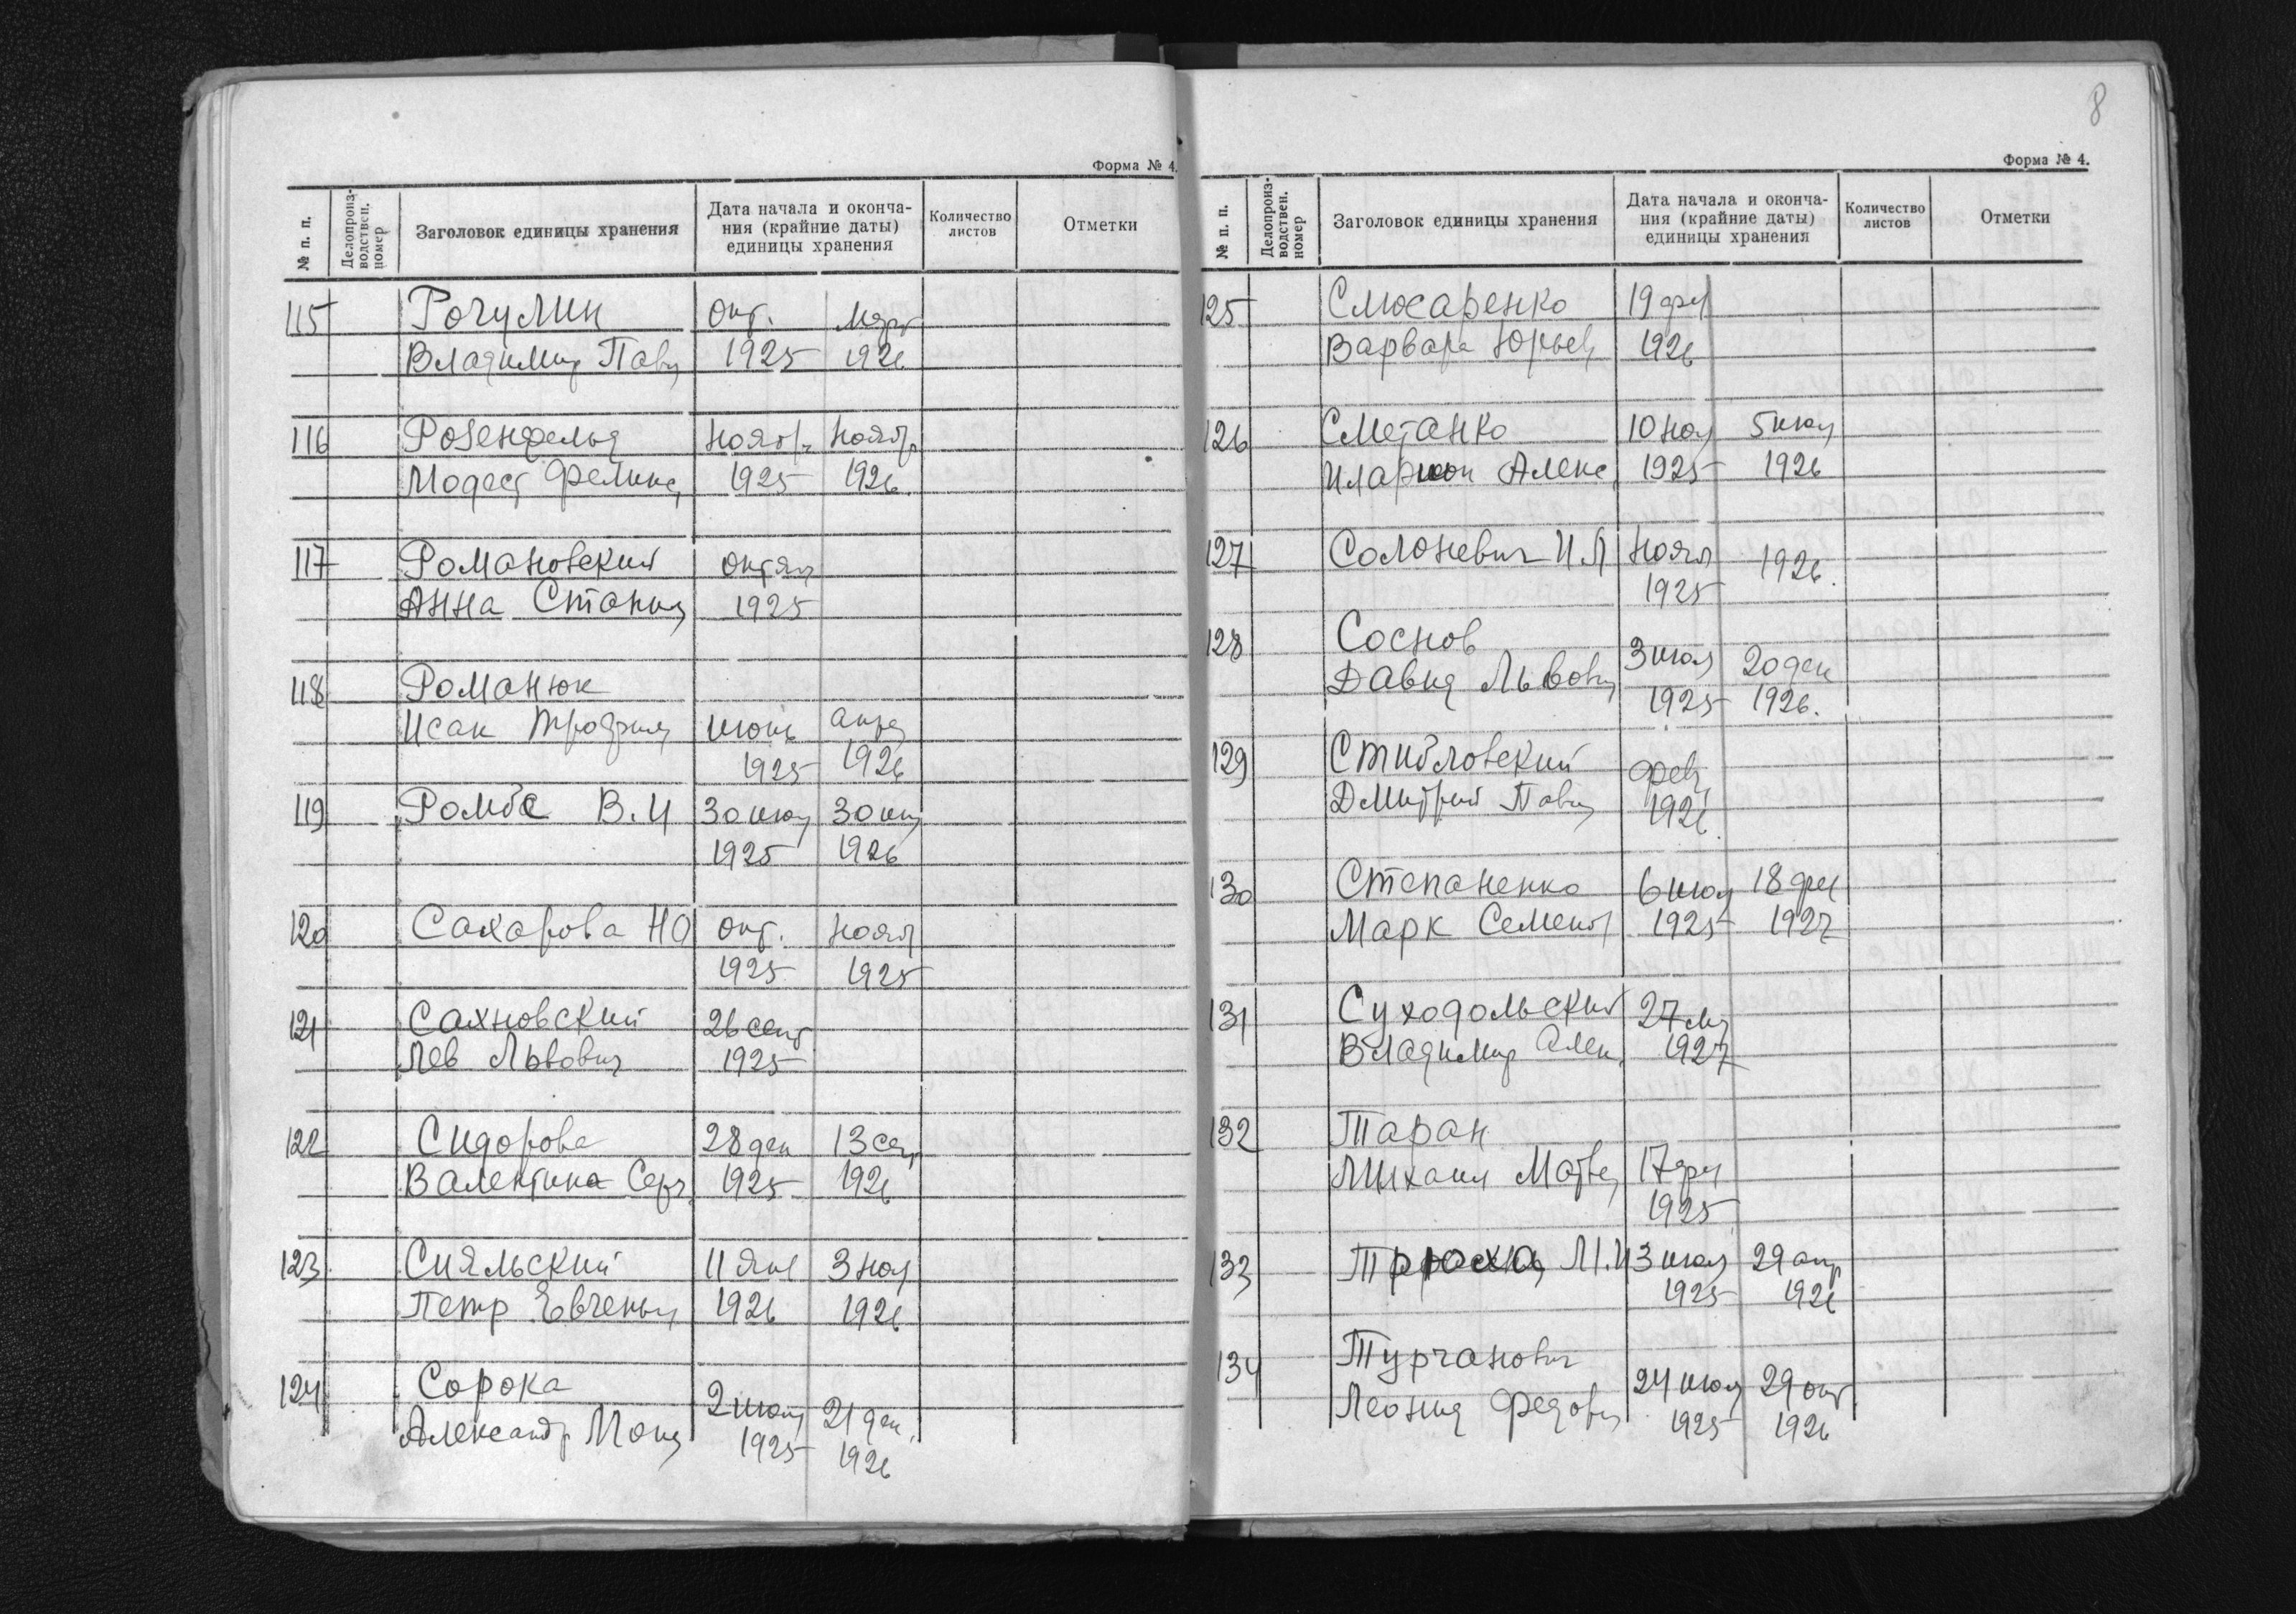 Форма № 4.
№ п. п.
Делопроиз-
водствен.
номер
Заголовок единицы хранения
Дата начала и оконча-
ния (крайние даты)
единицы хранения
Количество
листов
Отметки
115 Рогулин окт. март
Владимир Пав 1925 1926
116 Розенфельд ноябр ноябр
Модест Феликс 1925 1926.
117 Романовский октяб
Анна Станис 1925
118 Романюк
Исак Трофим июнь апре
1925 1926
119 Ромбе В.И 30 июн 30 июн
1925 1926
120 Сахарова НО окт. нояб
1925 1925
121 Сахновский 26 сент
Лев Львович 1925
122 Сидорова 28 дек 13 сен
Валентина Серг. 1925 1926
123 Сияльский 11 янв 3 ноя
Петр Евгеньи 1926 1926
124 Сорока 2 июн 21 дек.
Александр 1925 1926
8
Форма № 4.
№ п. п.
Делопроиз-
водствен.
номер
Заголовок единицы хранения
Дата начала и оконча-
ния (крайние даты)
единицы хранения
Количество
листов
Отметки
125 Слюсаренко 19 фев
Варвара Юрьев 1926
126 Сметанко 10 ноя 5 июл
Иларион Алекс. 1925 1926
127 Солоневич И Л нояб 1926.
1925
128 Соснов
Давид Львови 3 июл 20 дек
1925 1926.
129 Стибловский фев
Дмитрий Пав 1926.
130 Степаненко 6 июл 18 фев
Марк Семенов 1925 1927
131 Суходольский 27 ма
Владимир Алек. 1927
132 Таран
Михаил Матве 17 фев
1925
133 М.И 3 июл 29 апр
1925 1926
134 Турчанович
Леонид Федов 24 июл 29 окт
1925 1926